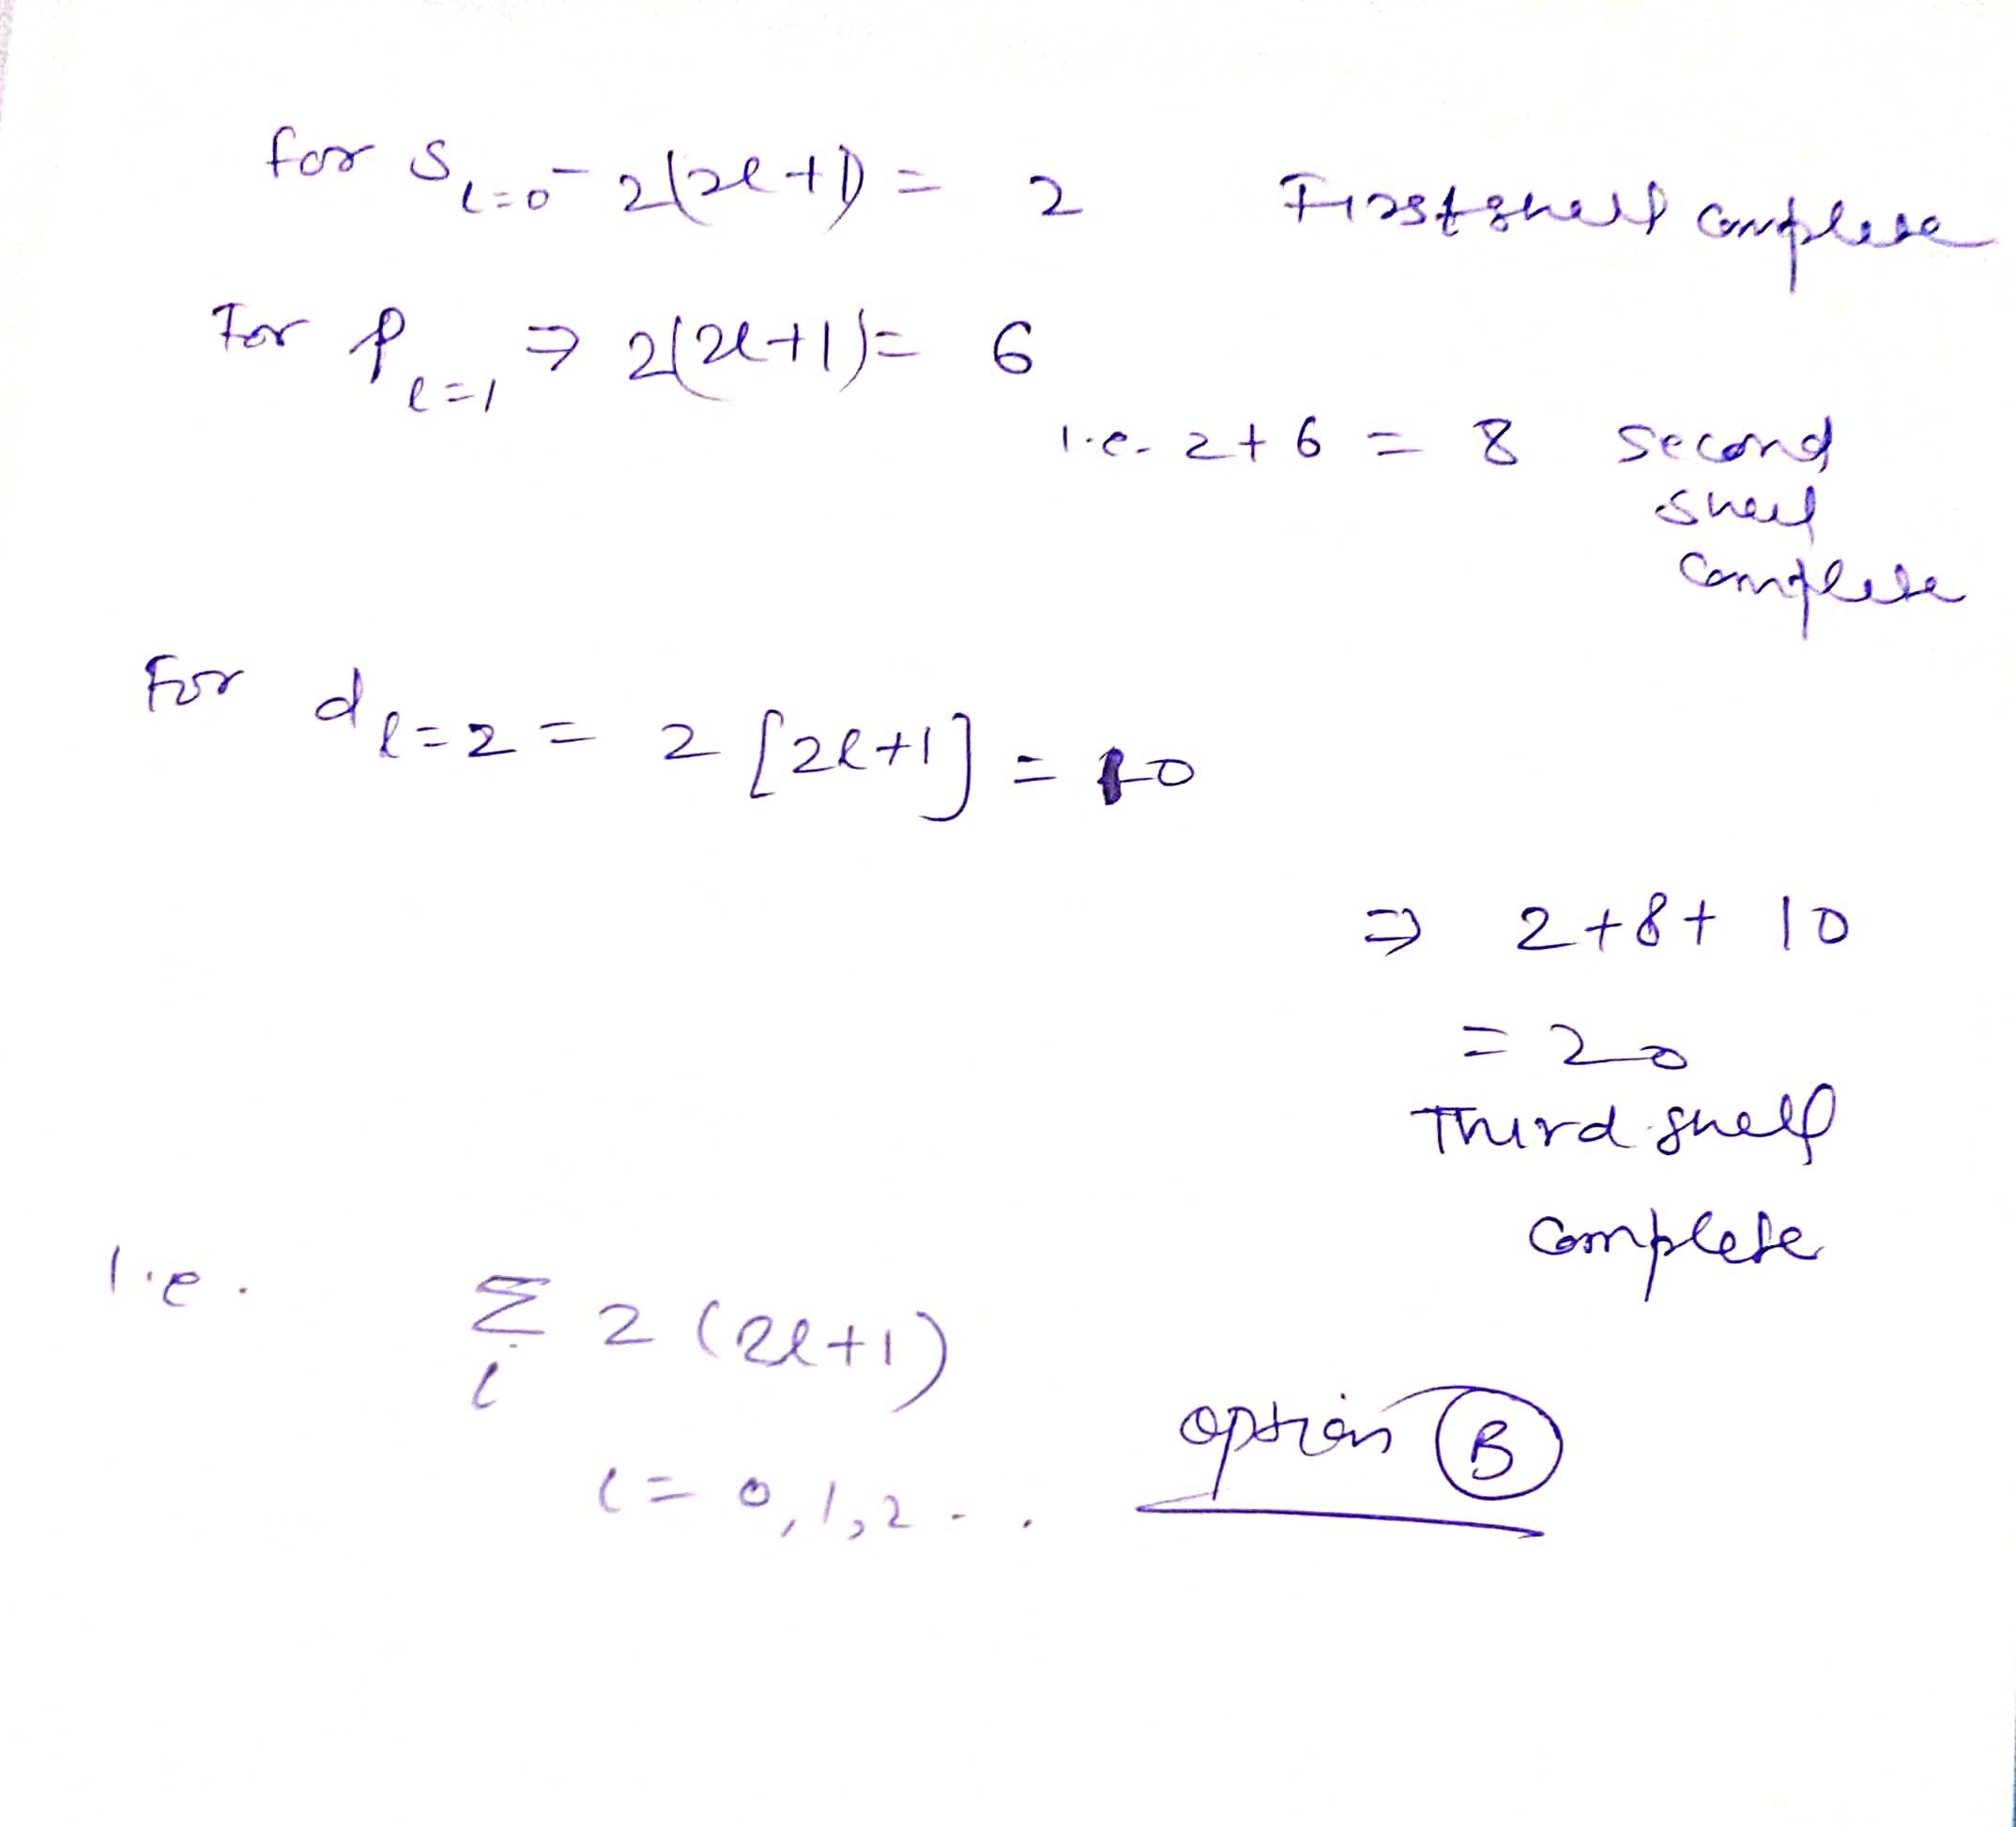 for S l=0 - 2(2l+1) = 2 First shell complete
For P l=1 ⇒ 2(2l+1) = 6
i.e. 2+6 = 8 second
shell
complete
For d l=2 = 2[2l+1] = 10
⇒ 2+8+10
= 20
Third shell
complete
i.e. Σ l 2(2l+1)
l = 0,1,2 . .
option B